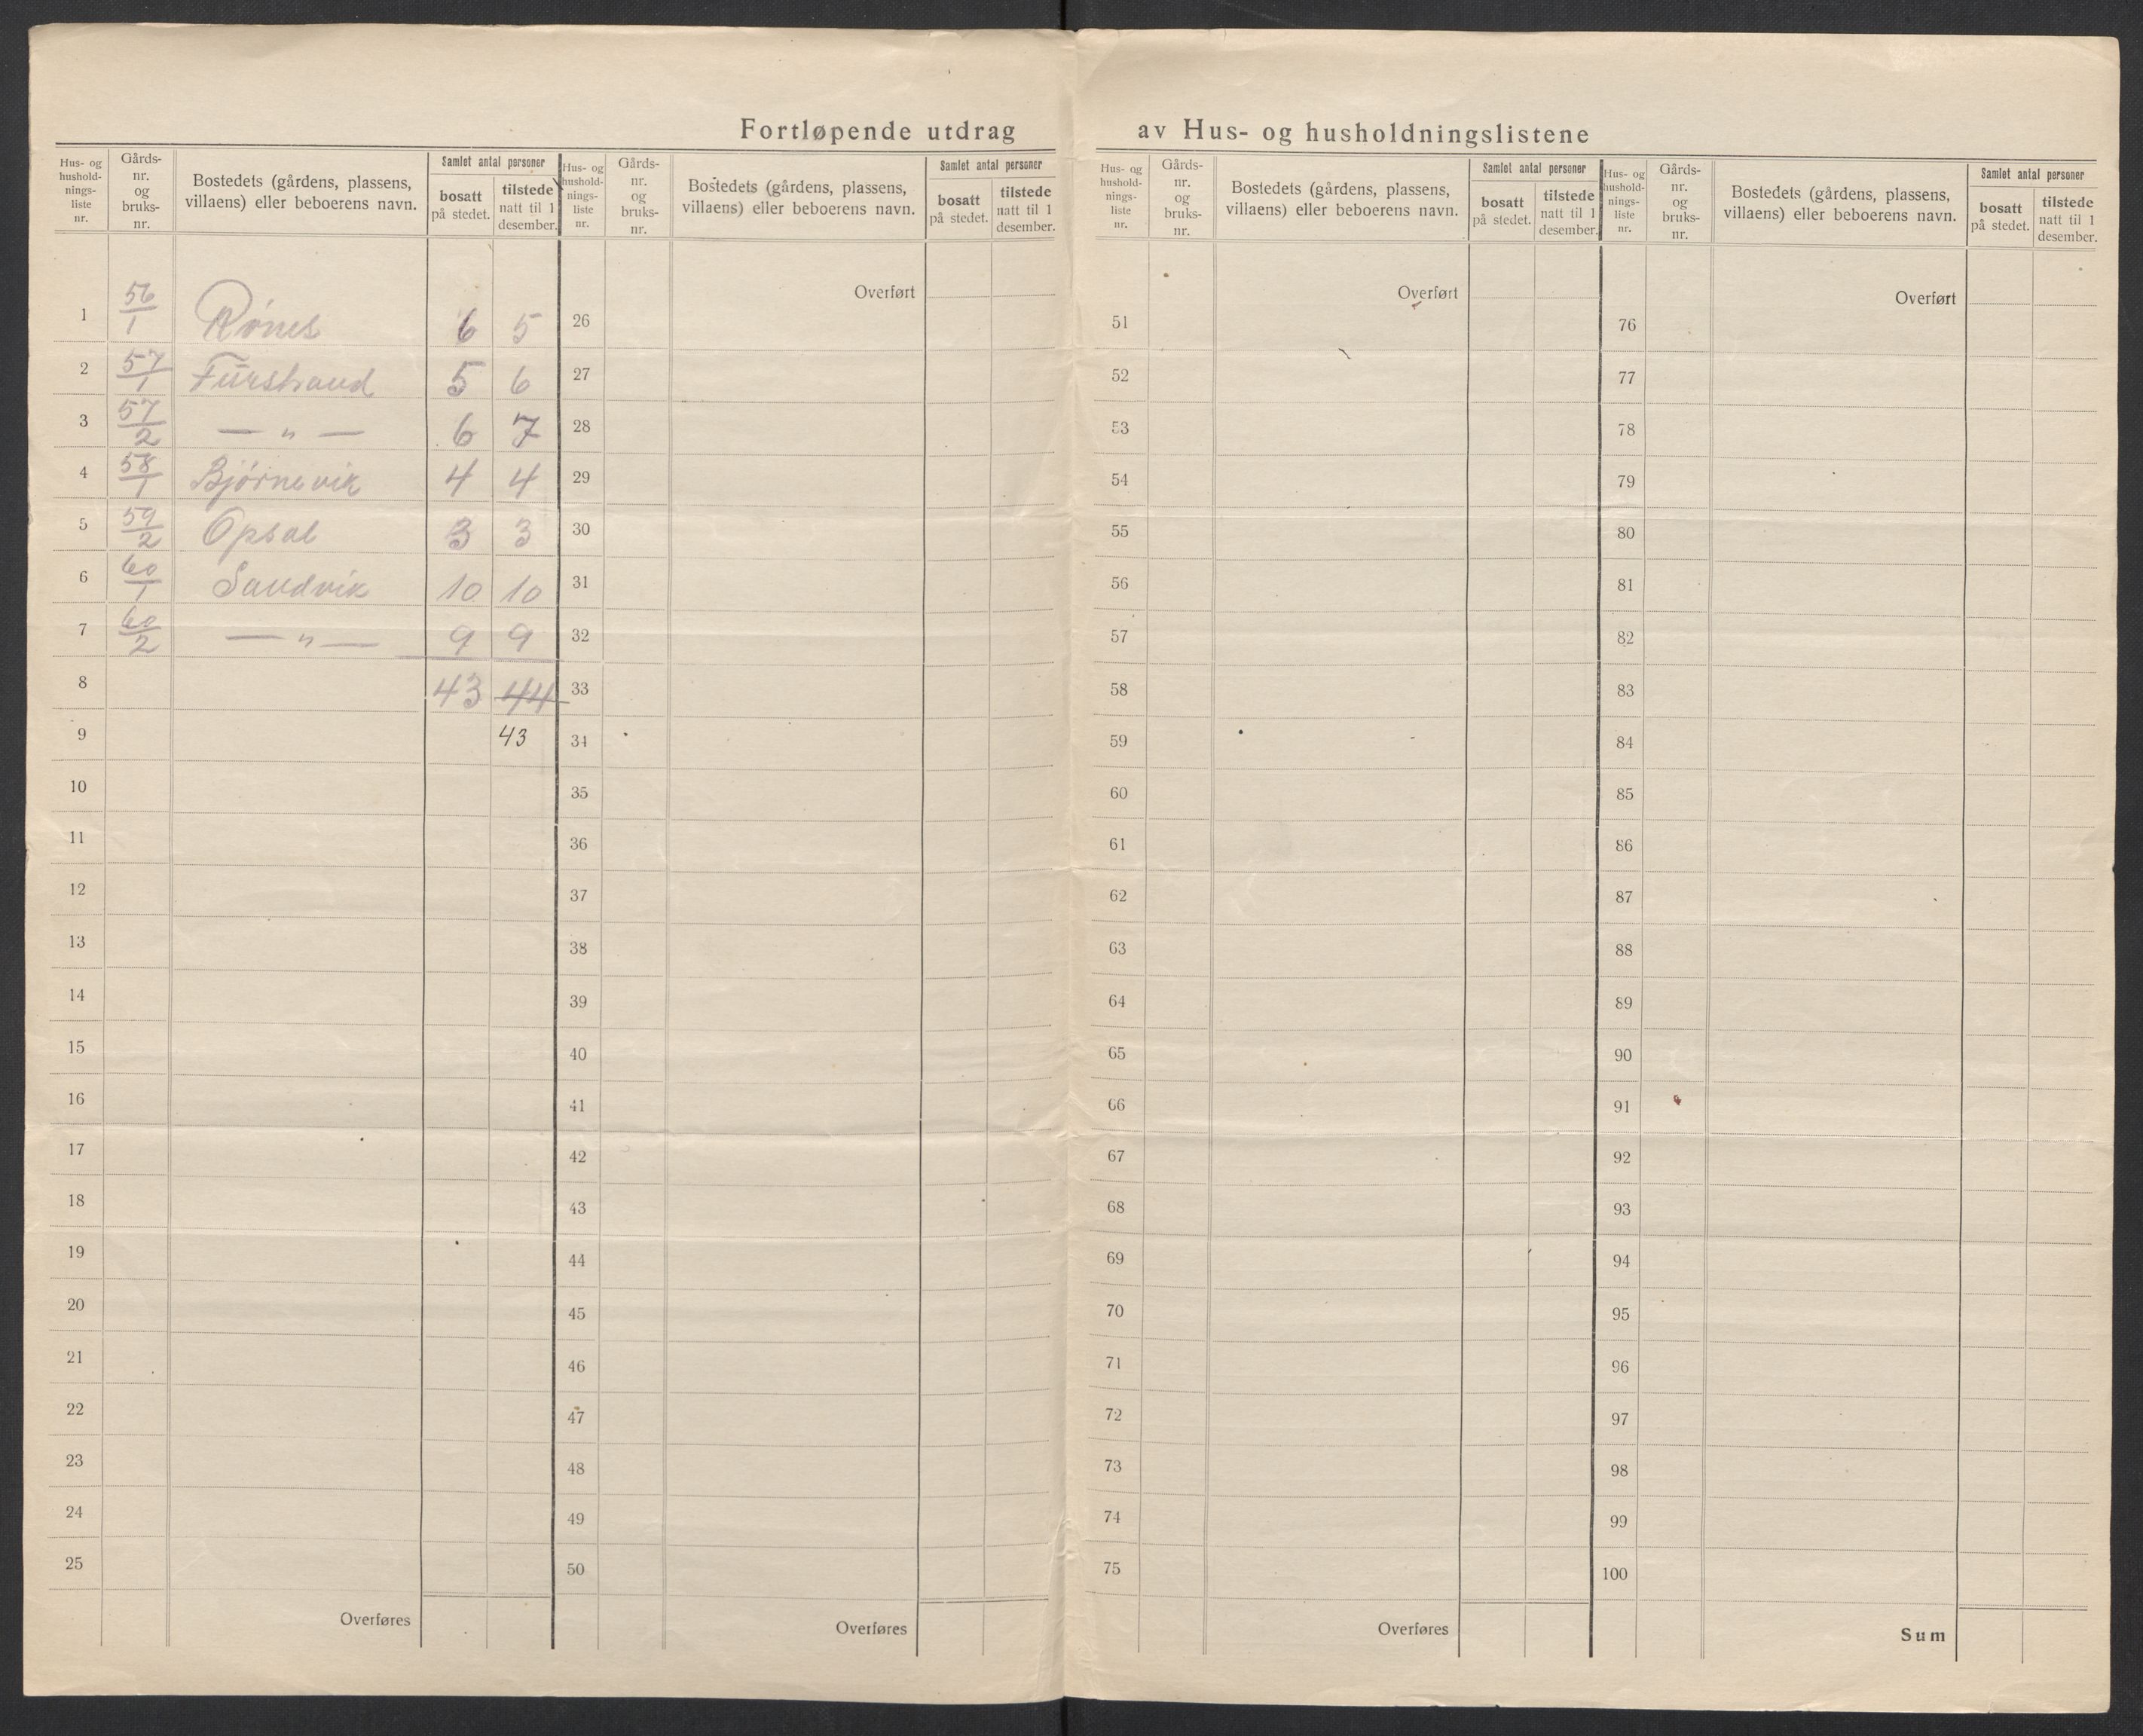 Fortløpende utdrag av Hus- og husholdningslistene
Hus- og husholdnings-liste nr. Gårds-nr. og bruks-nr. Bostedets (gårdens, plassens, villaens) eller beboerens navn. Samlet antal personer bosatt på stedet. tilstede natt til 1 desember.
1 56/1 Rönes 6 5
2 57/1 Fürstrand 5 6
3 57/2 — „ — 6 7
4 58/1 Bjørnevik 4 4
5 59/2 Opsal 3 3
6 60/1 Sandvik 10 10
7 60/2 — „ — 9 9
8 43 44
9 43
10
11
12
13
14
15
16
17
18
19
20
21
22
23
24
25
Overføres
Hus- og husholdnings-liste nr. Gårds-nr. og bruks-nr. Bostedets (gårdens, plassens, villaens) eller beboerens navn. Samlet antal personer bosatt på stedet. tilstede natt til 1 desember.
Overført
26
27
28
29
30
31
32
33
34
35
36
37
38
39
40
41
42
43
44
45
46
47
48
49
50
Overføres
Hus- og husholdnings-liste nr. Gårds-nr. og bruks-nr. Bostedets (gårdens, plassens, villaens) eller beboerens navn. Samlet antal personer bosatt på stedet. tilstede natt til 1 desember.
Overført
51
52
53
54
55
56
57
58
59
60
61
62
63
64
65
66
67
68
69
70
71
72
73
74
75
Overføres
Hus- og husholdnings-liste nr. Gårds-nr. og bruks-nr. Bostedets (gårdens, plassens, villaens) eller beboerens navn. Samlet antal personer bosatt på stedet. tilstede natt til 1 desember.
Overført
76
77
78
79
80
81
82
83
84
85
86
87
88
89
90
91
92
93
94
95
96
97
98
99
100
Sum